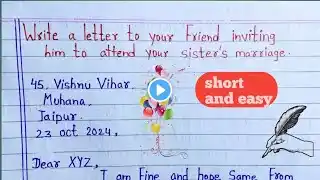 Write a letter to your Friend inviting
him to attend your sister's marriage.
short
and easy
45, Vishnu Vihar
Muhana,
Jaipur.
23 oct 2024,
Dear XYZ,
I am Fine and hope Same From